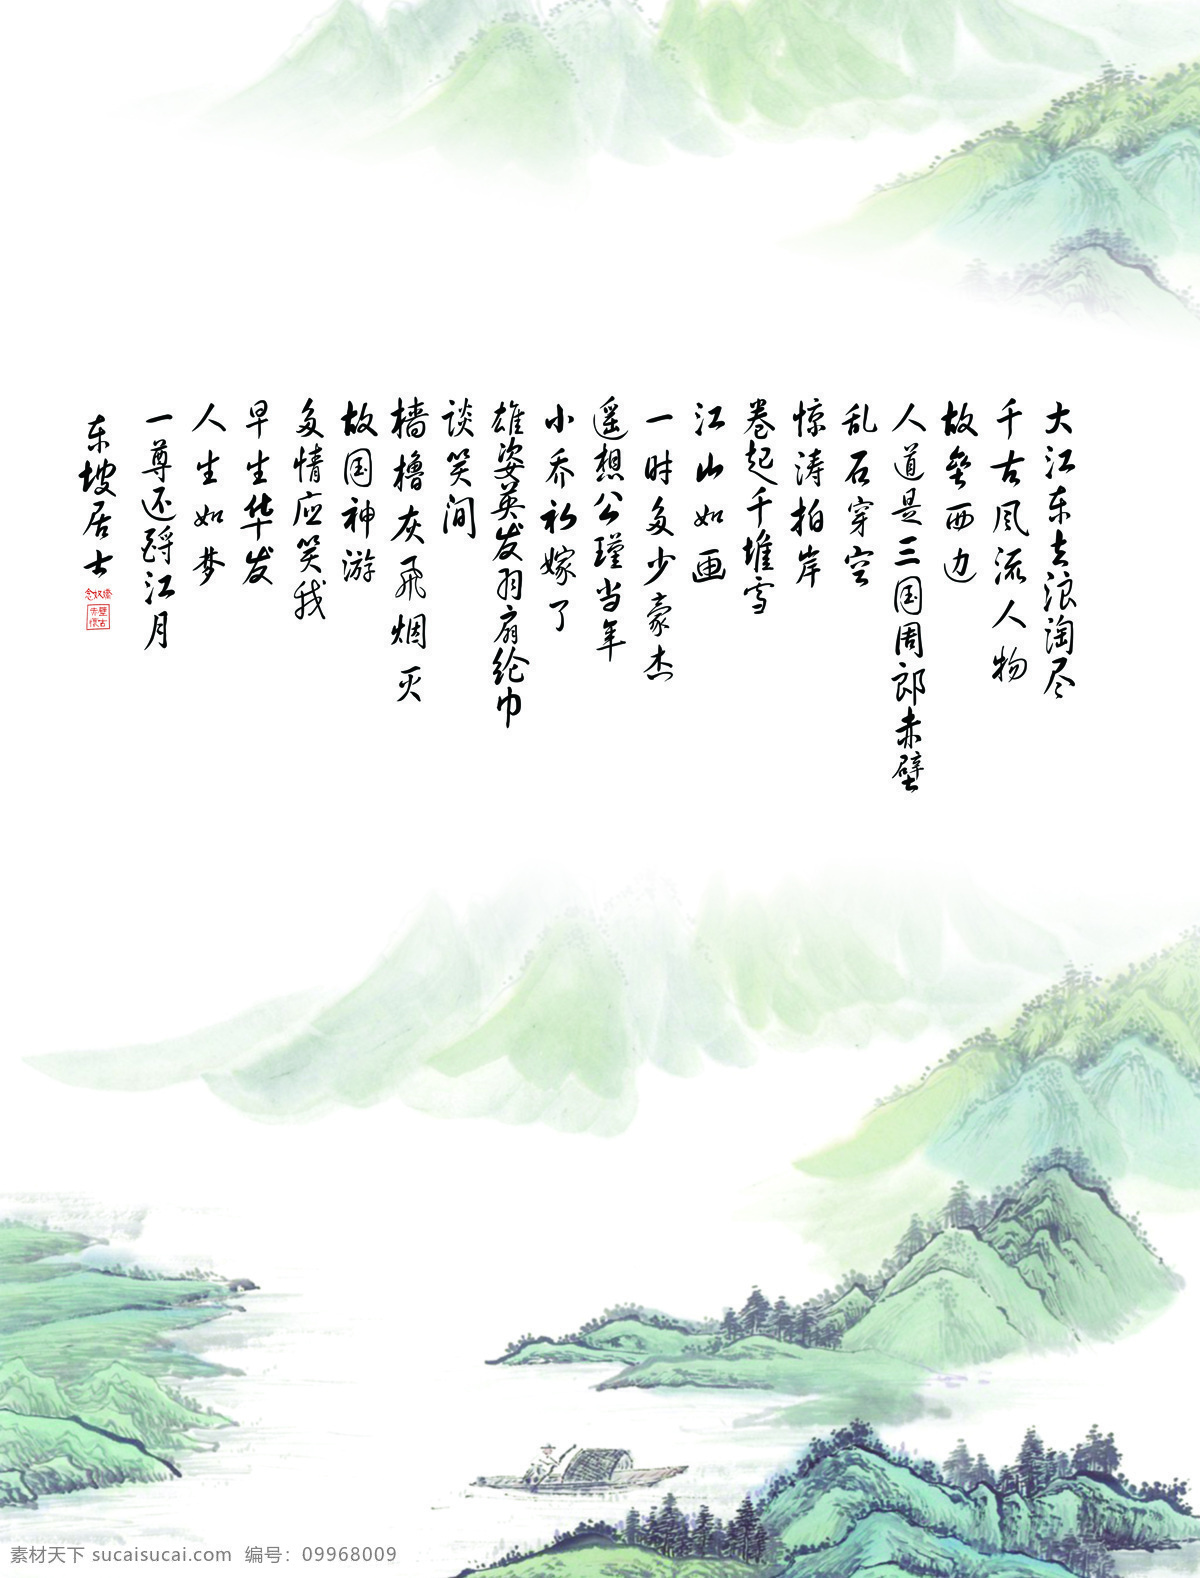 大江东去浪淘尽
千古风流人物
故垒西边
人道是三国周郎赤壁
乱石穿空
惊涛拍岸
卷起千堆雪
江山如画
一时多少豪杰
遥想公瑾当年
小乔初嫁了
雄姿英发羽扇纶巾
谈笑间
樯橹灰飞烟灭
故国神游
多情应笑我
早生华发
人生如梦
一尊还酹江月
东坡居士
念奴娇
赤壁怀古
素材天下 sucaisucai.com 编号：09968009